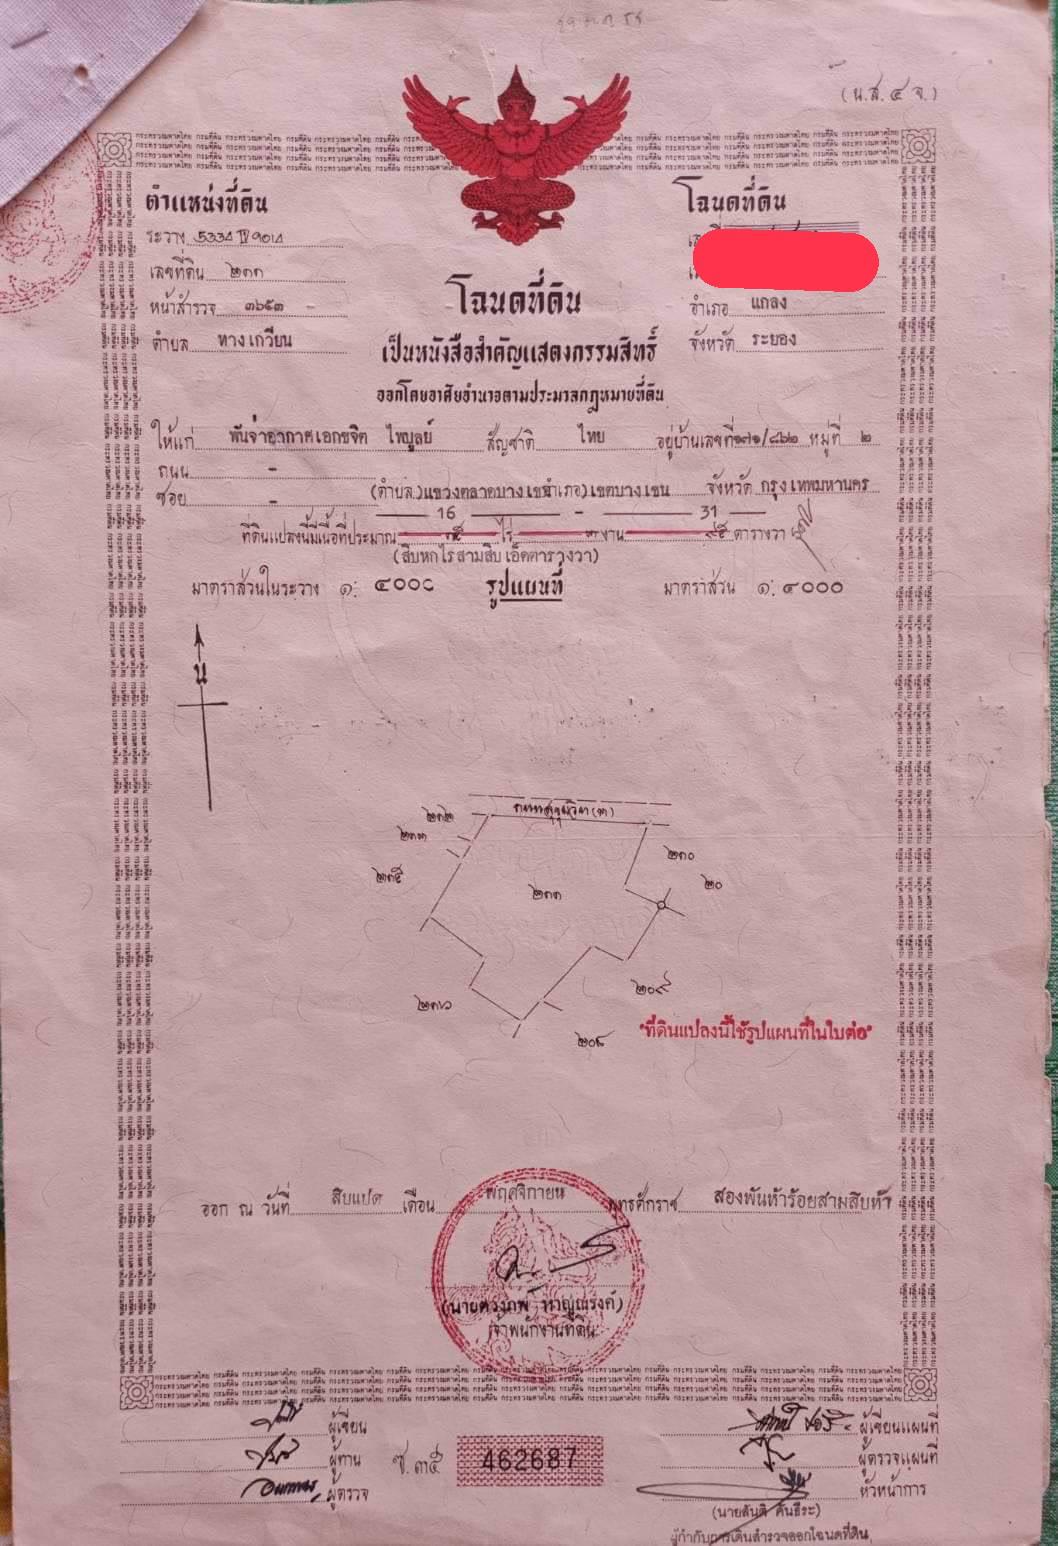 (น.ส. ๔ จ.)
ตำแหน่งที่ดิน
ระวาง 5334 IV 9014
เลขที่ดิน ๒๓๓
หน้าสำรวจ ๓๖๕๓
ตำบล ทางเกวียน
โฉนดที่ดิน
อำเภอ แกลง
จังหวัด ระยอง
โฉนดที่ดิน
เป็นหนังสือสำคัญแสดงกรรมสิทธิ์
ออกโดยอาศัยอำนาจตามประมวลกฎหมายที่ดิน
ให้แก่ พันจ่าอากาศเอกขจิต ไพบูลย์ สัญชาติ ไทย อยู่บ้านเลขที่ ๑๗๑/๘๖๒ หมู่ที่ ๒
ถนน -
ซอย - (ตำบล) แขวงตลาดบางเขน (อำเภอ) เขตบางเขน จังหวัด กรุงเทพมหานคร
16 - 31
ที่ดินแปลงนี้มีเนื้อที่ประมาณ ไร่ งาน ตารางวา
(สิบหกไร่สามสิบเอ็ดตารางวา)
มาตราส่วนในระวาง ๑: ๔๐๐๐ รูปแผนที่ มาตราส่วน ๑: ๔๐๐๐
น
๒๓๒
๒๓๓
๒๓๕
๒๓๐
๒๐
๒๓๓
๒๐๙
๒๓๖
๒๐๘
"ที่ดินแปลงนี้ใช้รูปแผนที่ในใบต่อ"
ออก ณ วันที่ สิบแปด เดือน พฤศจิกายน พุทธศักราช สองพันห้าร้อยสามสิบห้า
เจ้าพนักงานที่ดิน
ผู้เขียน
ผู้ทาน
ผู้ตรวจ
ซ. ๓๕
462687
ผู้เขียนแผนที่
ผู้ตรวจแผนที่
หัวหน้าการ
(นายสันติ คันธีระ)
ผู้กำกับการเดินสำรวจออกโฉนดที่ดิน